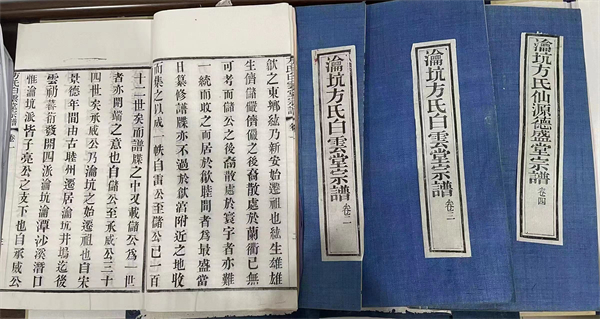 瀹坑方氏仙源德盛堂宗譜 卷四
瀹坑方氏白雲堂宗譜 卷三
瀹坑方氏白雲堂宗譜 卷二
方氏白雲堂宗譜 卷
歙之東鄉紘乃新安始遷祖也紘生雄雄
生儕儲儼儕儼之後裔散處於蘭衢已無
可考而儲公之後裔散處於寰宇者亦難
一統而收之而居於歙睦間者為最盛當
日纂修譜牒亦不過於歙富附近之地收
而集之以成一帙自雷公至儲公已一百
十二世矣而譜牒之中又載儲公為一世
者亦開端之意也自儲公至承威公三十
四世矣承威公乃瀹坑之始遷祖也自宋
景德年間由古睦州遷居瀹坑井塢迄後
雲礽蕃衍發開四派瀹坑瀹潭沙溪湣口
惟瀹坑派皆子亮公之支下也自承威公
方氏白雲堂宗譜 卷一